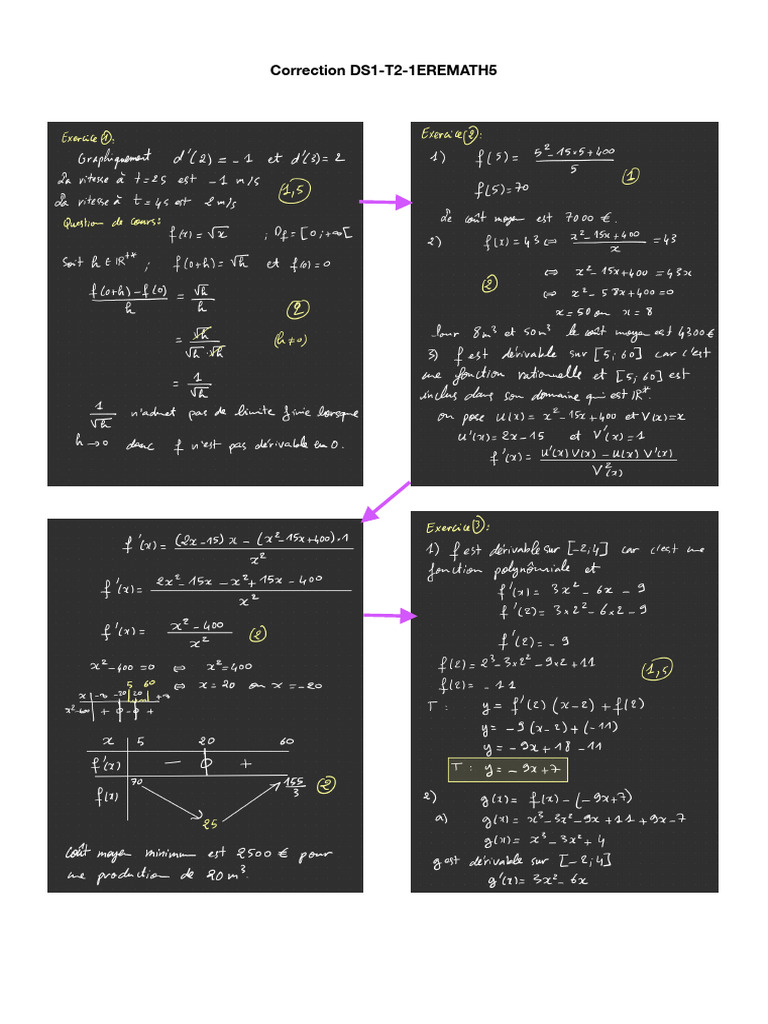 Correction DS1-T2-1EREMATH5
Exercice ①:
Graphiquement d'(2) = -1 et d'(3) = 2
La vitesse à t=2s est -1 m/s
La vitesse à t=4s est 2m/s
1,5
Question de cours:
f(x) = √x ; Df = [0; +∞[
Soit h ∈ IR+* ; f(0+h) = √h et f(0) = 0
(f(0+h) - f(0))/h = √h/h
2
= √h/(√h·√h) (h≠0)
= 1/√h
1/√h n'admet pas de limite finie lorsque
h→0 donc f n'est pas dérivable en 0.
Exercice ②:
1) f(5) = (5² - 15×5 + 400)/5
1
f(5) = 70
Le coût moyen est 7000 €.
2) f(x) = 43 ⇔ (x² - 15x + 400)/x = 43
⇔ x² - 15x + 400 = 43x
2
⇔ x² - 58x + 400 = 0
x = 50 ou x = 8
Pour 8m³ et 50m³ le coût moyen est 4300 €
3) f est dérivable sur [5; 60] car c'est
une fonction rationnelle et [5; 60] est
inclus dans son domaine qui est IR*.
on pose u(x) = x² - 15x + 400 et V(x) = x
u'(x) = 2x - 15 et V'(x) = 1
f'(x) = (u'(x) V(x) - u(x) V'(x))/V²(x)
f'(x) = ((2x - 15) x - (x² - 15x + 400)·1)/x²
f'(x) = (2x² - 15x - x² + 15x - 400)/x²
f'(x) = (x² - 400)/x²
2
x² - 400 = 0 ⇔ x² = 400
⇔ x = 20 ou x = -20
5 60
x -∞ -20 20 +∞
x²-400 + 0 - 0 +
x 5 20 60
f'(x) - 0 +
f(x) 70 25 155/3
2
Coût moyen minimum est 2500 € pour
une production de 20m³.
Exercice ③:
1) f est dérivable sur [-2; 4] car c'est une
fonction polynômiale et
f'(x) = 3x² - 6x - 9
f'(2) = 3×2² - 6×2 - 9
f'(2) = -9
f(2) = 2³ - 3×2² - 9×2 + 11
1,5
f(2) = -11
T : y = f'(2) (x-2) + f(2)
y = -9 (x-2) + (-11)
y = -9x + 18 - 11
T : y = -9x + 7
2) g(x) = f(x) - (-9x+7)
a) g(x) = x³ - 3x² - 9x + 11 + 9x - 7
g(x) = x³ - 3x² + 4
g est dérivable sur [-2; 4]
g'(x) = 3x² - 6x